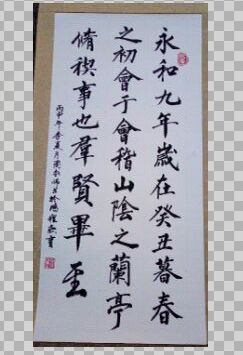 永和九年歲在癸丑暮春
之初會于會稽山陰之蘭亭
脩禊事也羣賢畢至
丙申年季夏月
書